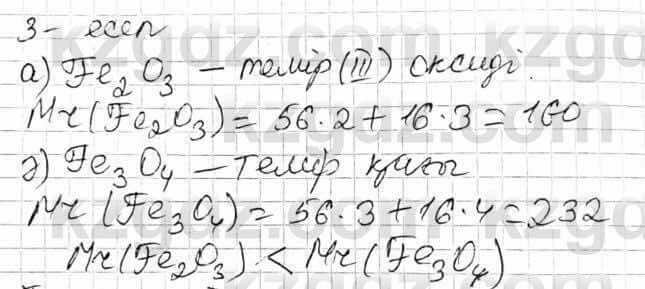 3- есеп
а) Fe₂O₃ – темір (III) оксиді.
Mr(Fe₂O₃) = 56·2 + 16·3 = 160
ә) Fe₃O₄ – темір қағы
Mr (Fe₃O₄) = 56·3 + 16·4 = 232
Mr(Fe₂O₃) < Mr(Fe₃O₄)